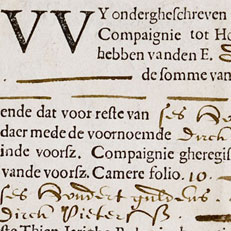 VVY ondergheschreven
Compaignie tot Ho
hebben vanden E.
de somme van
ende dat voor reste van ses
daer mede de voornoemde dirck
inde voorsz. Compaignie gheregis
vande voorsz. Camere folio. 10.
ses hondert guldens.
dirck Pieters